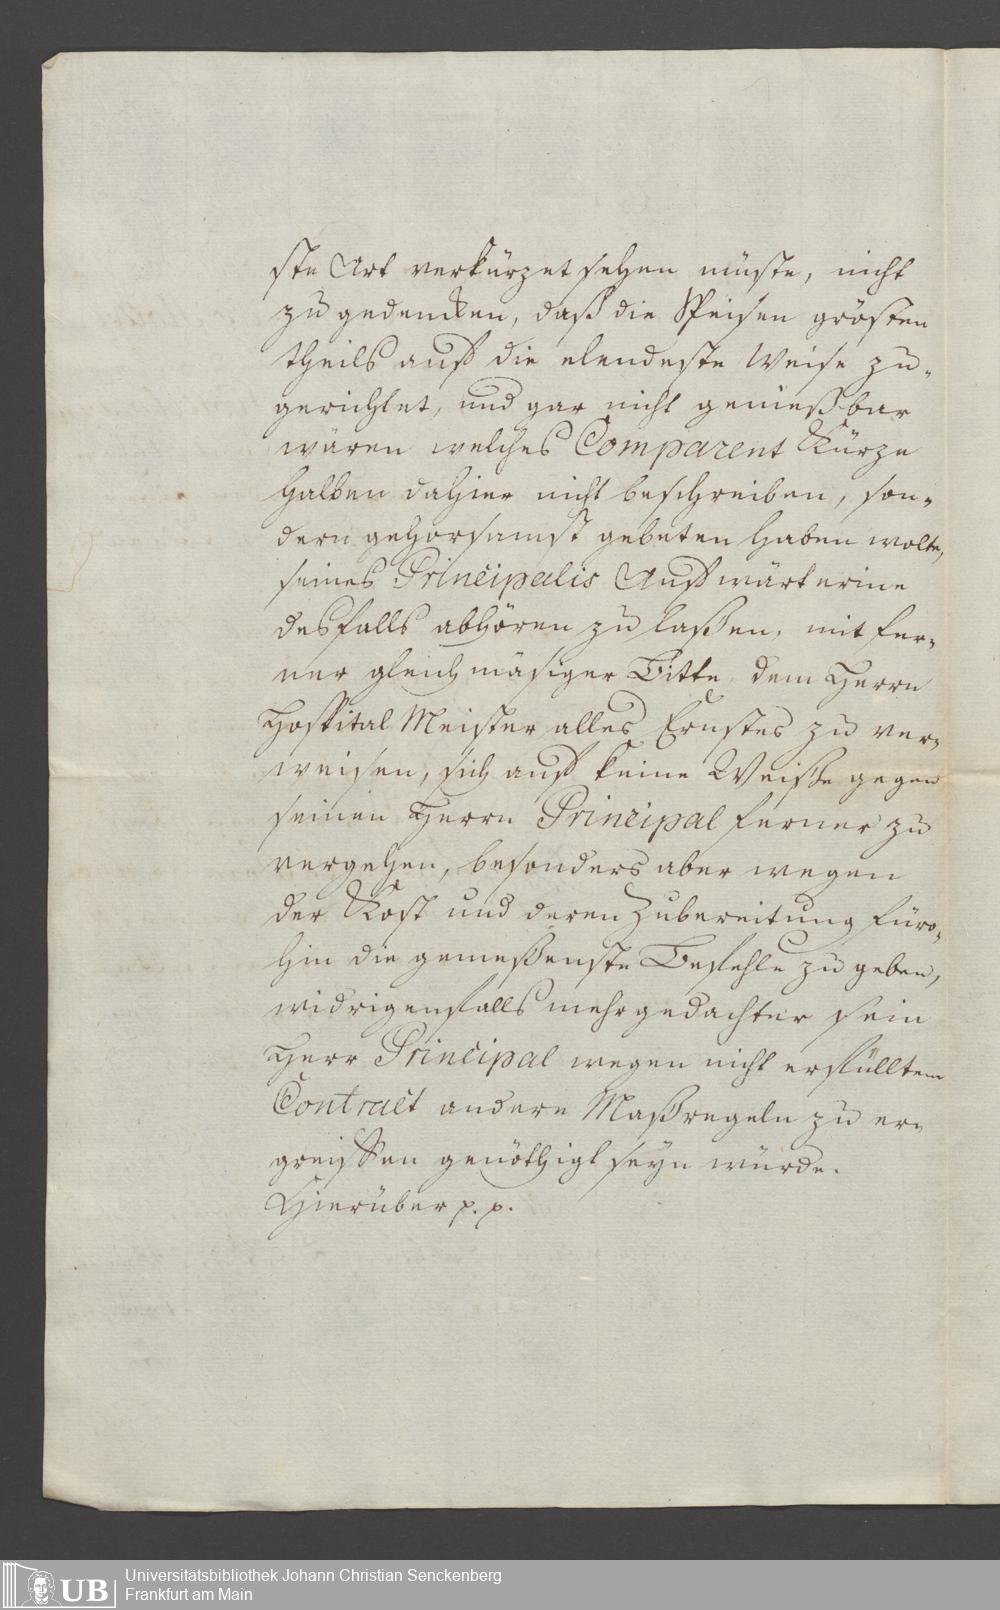 ste Art verkürzet sehen müste, nicht
zu gedencken, daß die Speisen grösten
theils auf die elendeste Weise zu-
gerichtet, und gar nicht genießbar
wären welches Comparent Kürze
halben dahier nicht beschreiben, son-
dern gehorsamst gebeten haben wolte,
seines Principalis Aufwärterine
desfalls abhören zu laßen, mit fer-
ner gleichmäsiger Bitte dem Herrn
Hospital Meister alles Ernstes zu ver-
weisen, sich auf keine Weiße gegen
seinen Herrn Principal ferner zu
vergehen, besonders aber wegen
der Kost und deren Zubereitung füro-
hin die gemeßenste Befehle zu geben,
widrigenfalls mehrgedachter sein
Herr Principal wegen nicht erfülltem
Contract andere Maßregeln zu er-
greiffen genöthigt seyn würde.
Hierüber p. p.
UB
Universitätsbibliothek Johann Christian Senckenberg
Frankfurt am Main